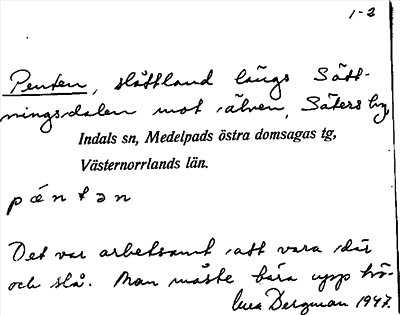 1-2
Penten, slåttland längs Sätt-
ningsdalen mot älven, Säters by,
Indals sn, Medelpads östra domsagas tg,
Västernorrlands län.
pæntən
Det var arbetsamt att vara där
och slå. Man måste bära upp hö-
Bergman 1947.